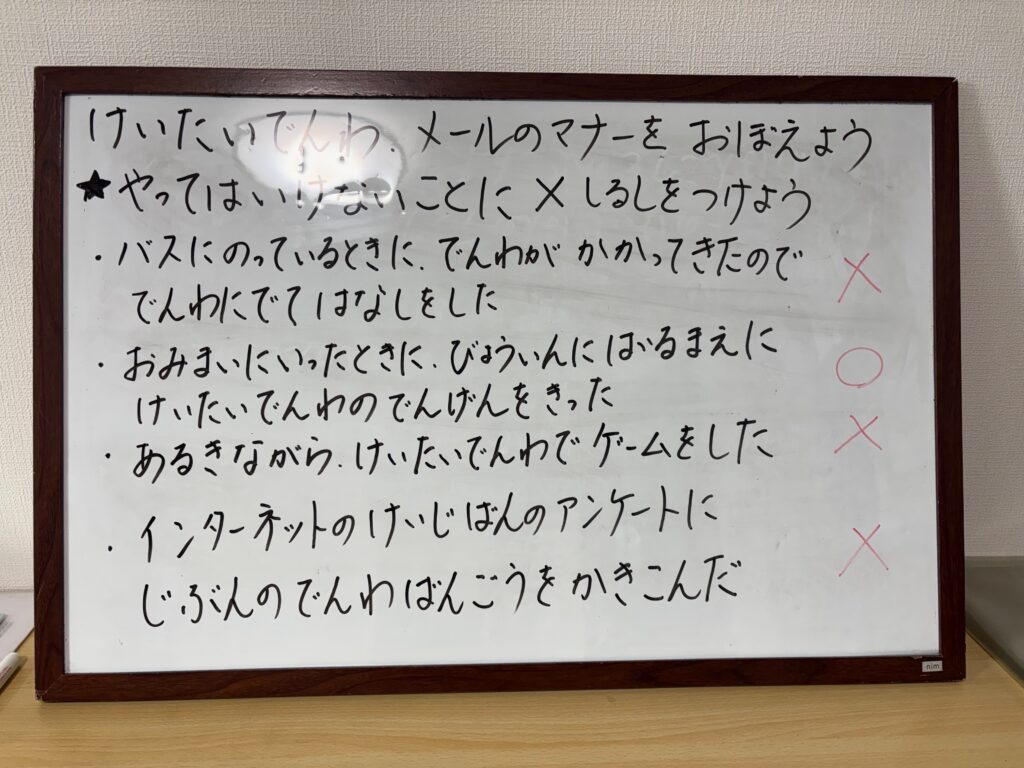 けいたいでんわ、メールのマナーを おぼえよう
★やってはいけないことに ×しるしをつけよう
・バスにのっているときに、でんわが かかってきたので ×
でんわにでて はなしをした
・おみまいにいったときに、びょういんに はいるまえに ○
けいたいでんわのでんげんをきった
・あるきながら、けいたいでんわで ゲームをした ×
・インターネットのけいじばんのアンケートに ×
じぶんのでんわばんごうをかきこんだ
nim